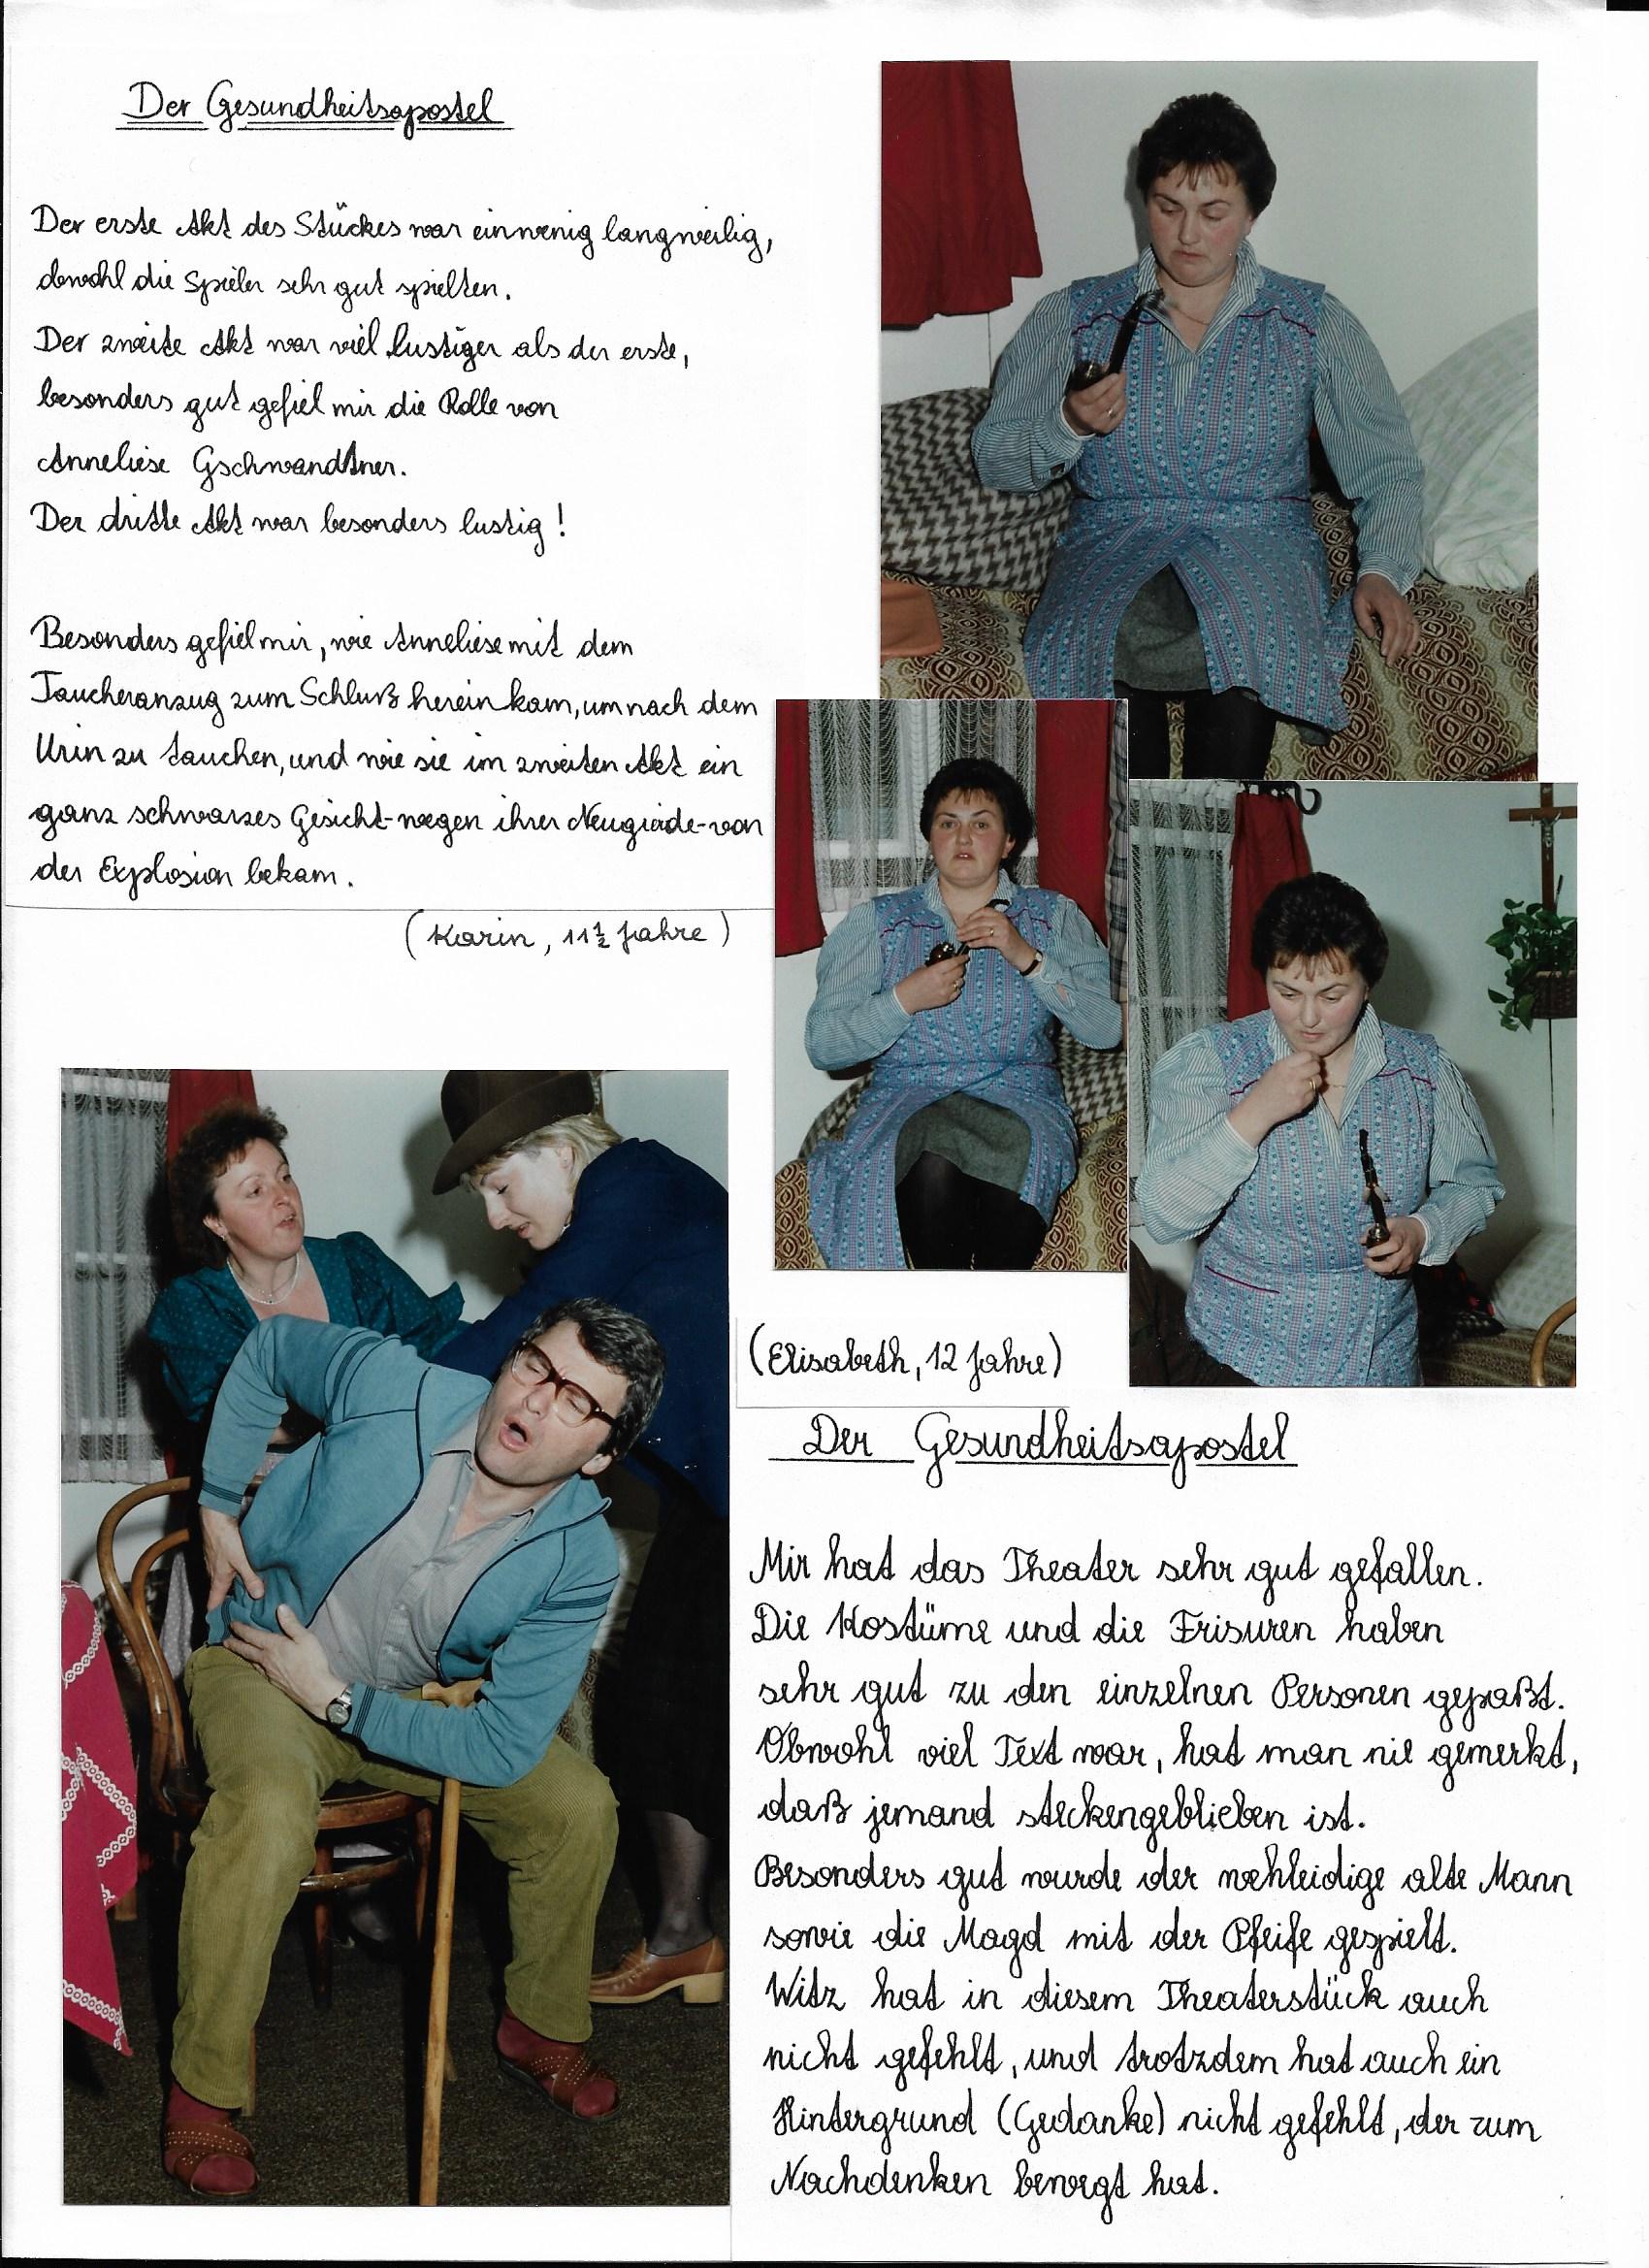 Der Gesundheitsapostel
Der erste Akt des Stückes war einwenig langweilig,
obwohl die Spieler sehr gut spielten.
Der zweite Akt war viel lustiger als der erste,
besonders gut gefiel mir die Rolle von
Anneliese Gschwandtner.
Der dritte Akt war besonders lustig!
Besonders gefiel mir, wie Anneliese mit dem
Taucheranzug zum Schluß herein kam, um nach dem
Urin zu tauchen, und wie sie im zweiten Akt ein
ganz schwarzes Gesicht-wegen ihrer Neugierde-von
der Explosion bekam.
(Karin, 11½ Jahre)
(Elisabeth, 12 Jahre)
Der Gesundheitsapostel
Mir hat das Theater sehr gut gefallen.
Die Kostüme und die Frisuren haben
sehr gut zu den einzelnen Personen gepaßt.
Obwohl viel Text war, hat man nie gemerkt,
daß jemand steckengeblieben ist.
Besonders gut wurde der wehleidige alte Mann
sowie die Magd mit der Pfeife gespielt.
Witz hat in diesem Theaterstück auch
nicht gefehlt, und trotzdem hat auch ein
Hintergrund (Gedanke) nicht gefehlt, der zum
Nachdenken bewegt hat.